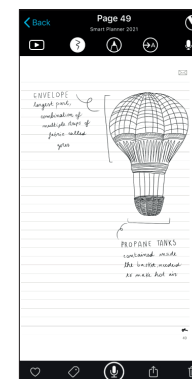 Back
Page 49
Smart Planner 2021
ENVELOPE
largest part,
combination of
multiple strips of
fabric called
gores
PROPANE TANKS
contained inside
the basket needed
to make hot air
49